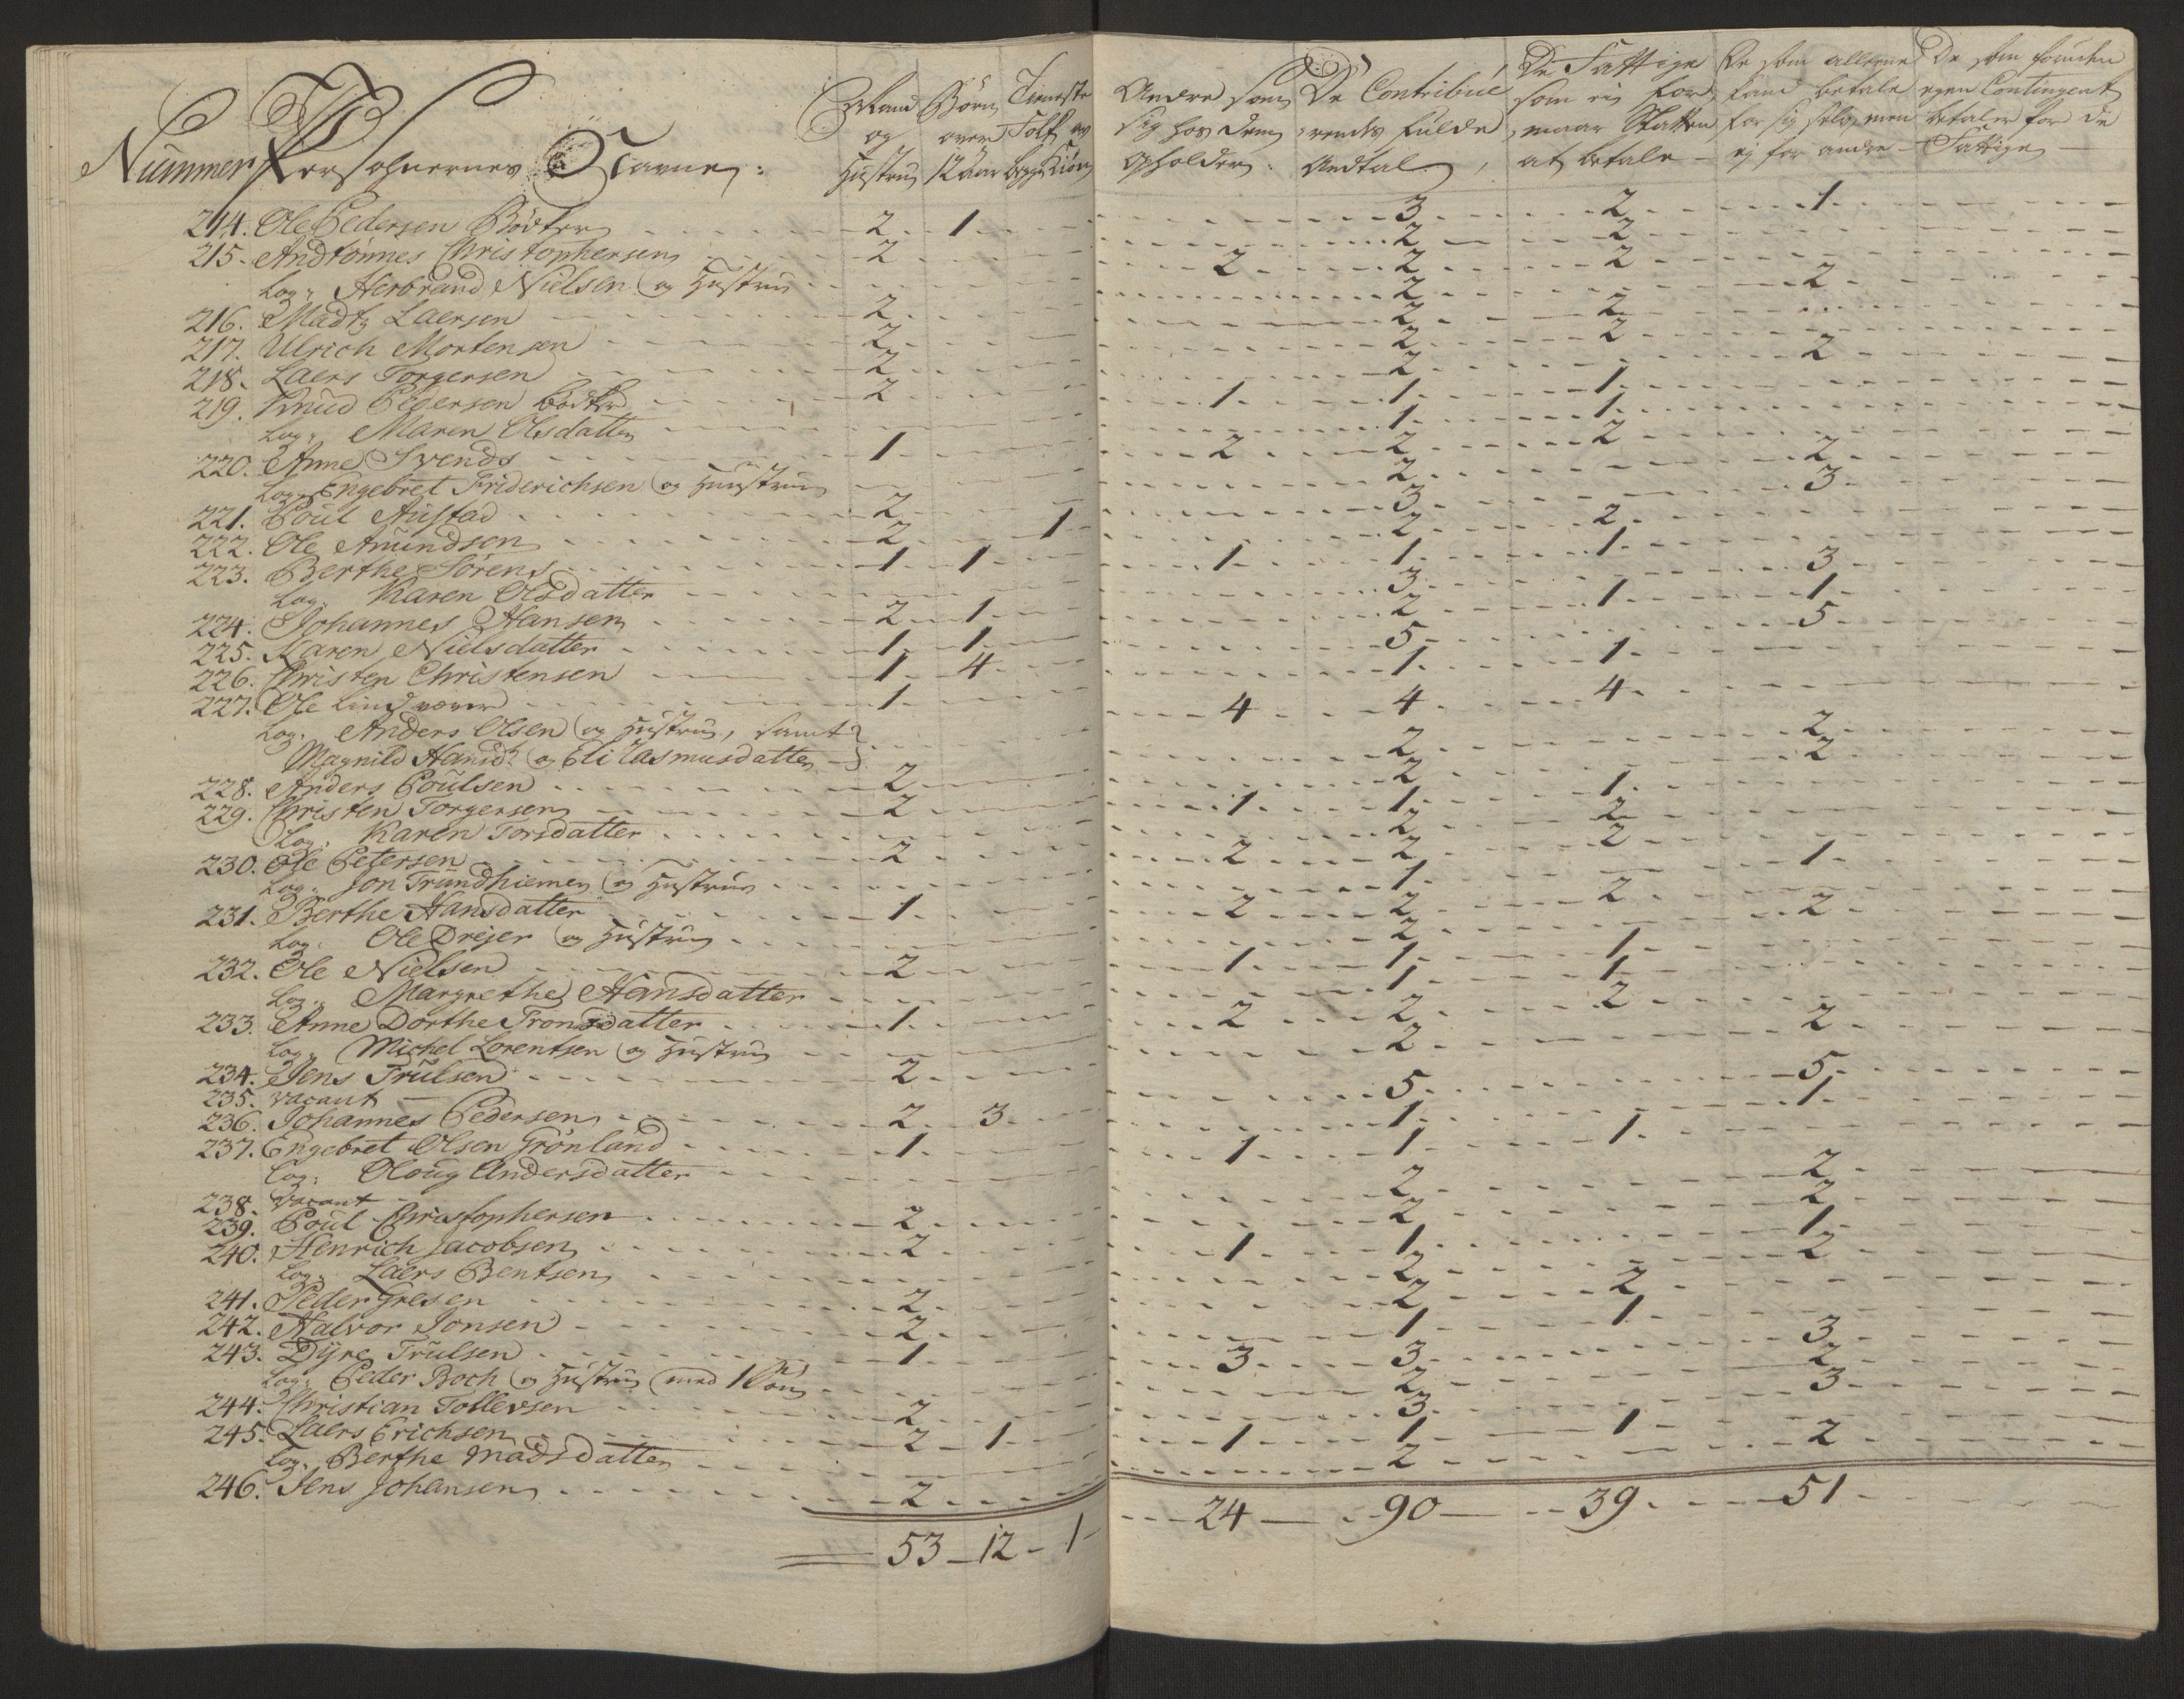 Nummer Persohnernes Navne:
Mand og Hustru
Børn over 12 Aar
Tieneste Folk av begge Kiøn
Andre som sig hos dem opholder.
De Contribue rendes fulde Andtal
De Fattige som ei formaar Skatten at betale
De som allene kand betale for sig selv, men ej for andre
De som foruden egen Contingent betaler for de Fattige
214. Ole Pedersen Bødker 2 1 3 2 1
215. Andtønnes Christophersen 2 2 2
Log: Herbrand Nielsen og Hustru 2 2 2
216. Madtz Laersen 2 2 2
217. Ulrich Mortensen 2 2 2
218. Laers Torgersen 2 2 2
219. Knud Pedersen Bødker 2 2 2
Log: Maren Olsdatter 1 1 1
220. Anne Svends 1 1 1
Log: Engebret Friderichsen og Hustru 2 2 2
221. Poul Austad 2 2 2
222. Ole Amundsen 2 1 3 3
223. Berthe Sørens 1 1 2 2
Log: Karen Olsdatter 1 1 1
224. Johannes Hansen 2 1 3 3
225. Karen Nielsdatter 1 1 2 1 1
226. Christen Christensen 1 4 5 5
227. Ole Lindværer 1 1 1
Log: Anders Olsen og Hustru, samt
Magnild Hansd: og Eli Rasmusdatter 4 4 4
228. Anders Poulsen 2 2 2
229. Christen Torgersen 2 2 2
Log: Karen Torsdatter 1 1 1
230. Ole Petersen 2 2 2
Log: Jon Trundhiemen og Hustru 2 2 2
231. Berthe Hansdatter 1 1 1
Log: Ole Drejer og Hustru 2 2 2
232. Ole Nielsen 2 2 2
Log: Margrethe Hansdatter 1 1 1
233. Anne Dorthe Tronsdatter 1 1 1
Log: Michel Lorentsen og Hustru 2 2 2
234. Jens Trulsen 2 2 2
235. vacant
236. Johannes Pedersen 2 3 5 5
237. Engebret Olsen Grønland 1 1 1
Log: Oloug Andersdatter 1 1 1
238. vacant
239. Poul Christophersen 2 2 2
240. Henrich Jacobsen 2 2 2
Log: Laers Bentsen 1 1 1
241. Peder Gresen 2 2 2
242. Halvor Jonsen 2 2 2
243. Dÿre Trulsen 1 1 1
Log: Peder Boch og Hustru med 1 Søn 3 3 3
244. Christian Tollevsen 2 2 2
245. Laers Erichsen 2 1 3 3
Log: Berthe Madsdatter 1 1 1
246. Jens Johansen 2 2 2
53 12 1 24 90 39 51